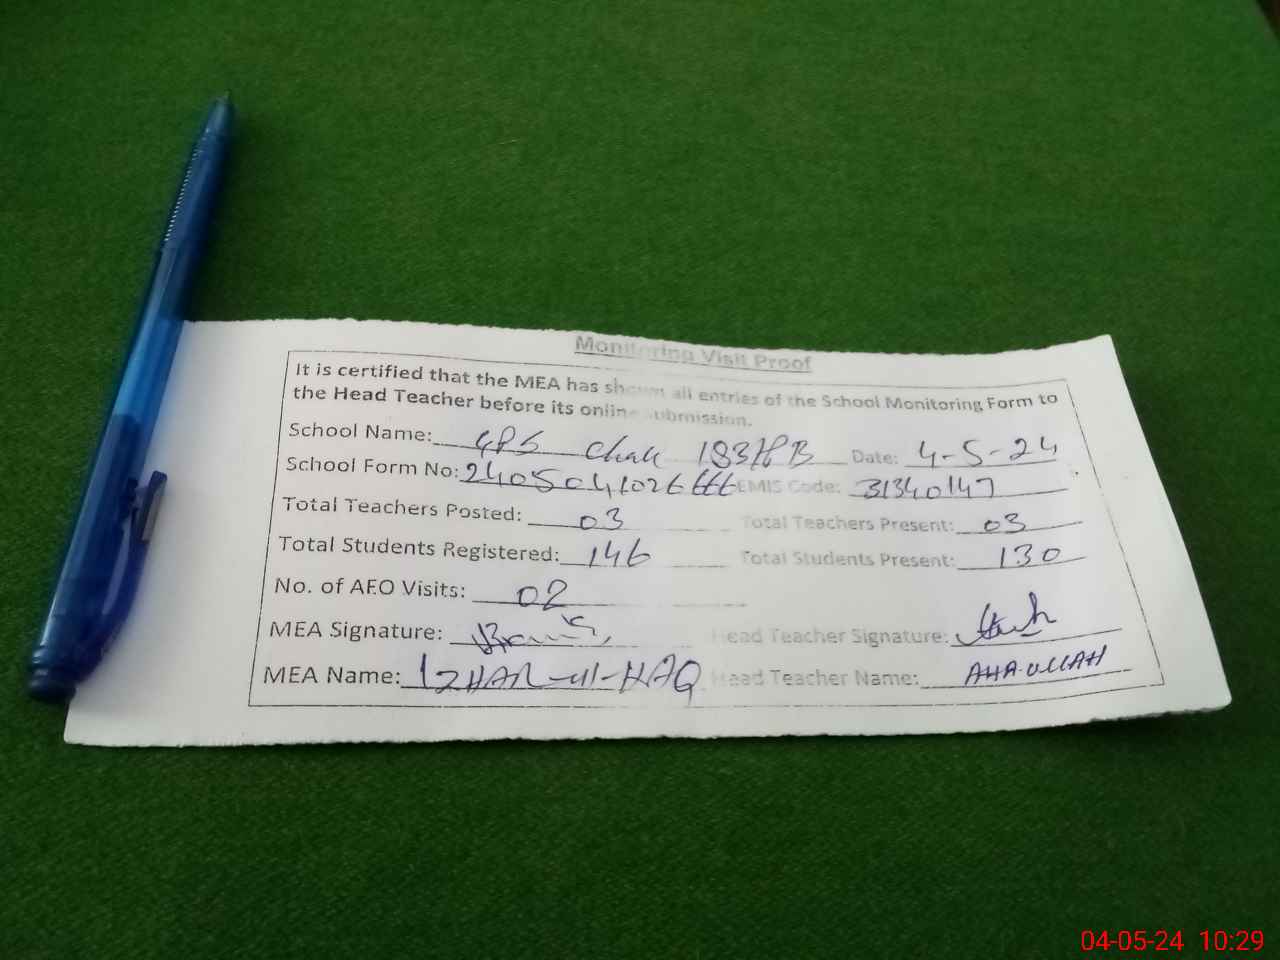 Monitoring Visit Proof
It is certified that the MEA has shown all entries of the School Monitoring Form to
the Head Teacher before its online submission.
School Name: GPS Chak 183/PB Date: 4-5-24
School Form No: 2405041026666 EMIS Code: 31340147
Total Teachers Posted: 03 Total Teachers Present: 03
Total Students Registered: 146 Total Students Present: 130
No. of AEO Visits: 02
MEA Signature: Head Teacher Signature:
MEA Name: IZHAR-ul-HAQ Head Teacher Name:
04-05-24 10:29